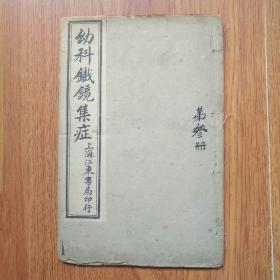 幼科鐵鏡集症
上海江東書局印行
第叁册